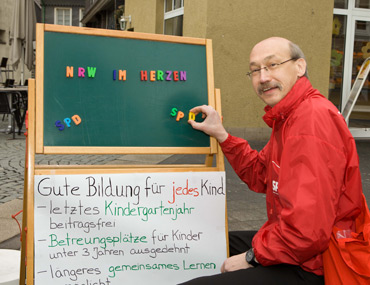 NRW IM HERZEN
SPD
SPD
Gute Bildung für jedes Kind
- letztes Kindergartenjahr
beitragsfrei
- Betreuungsplätze für Kinder
unter 3 Jahren ausgedehnt
- längeres gemeinsames Lernen